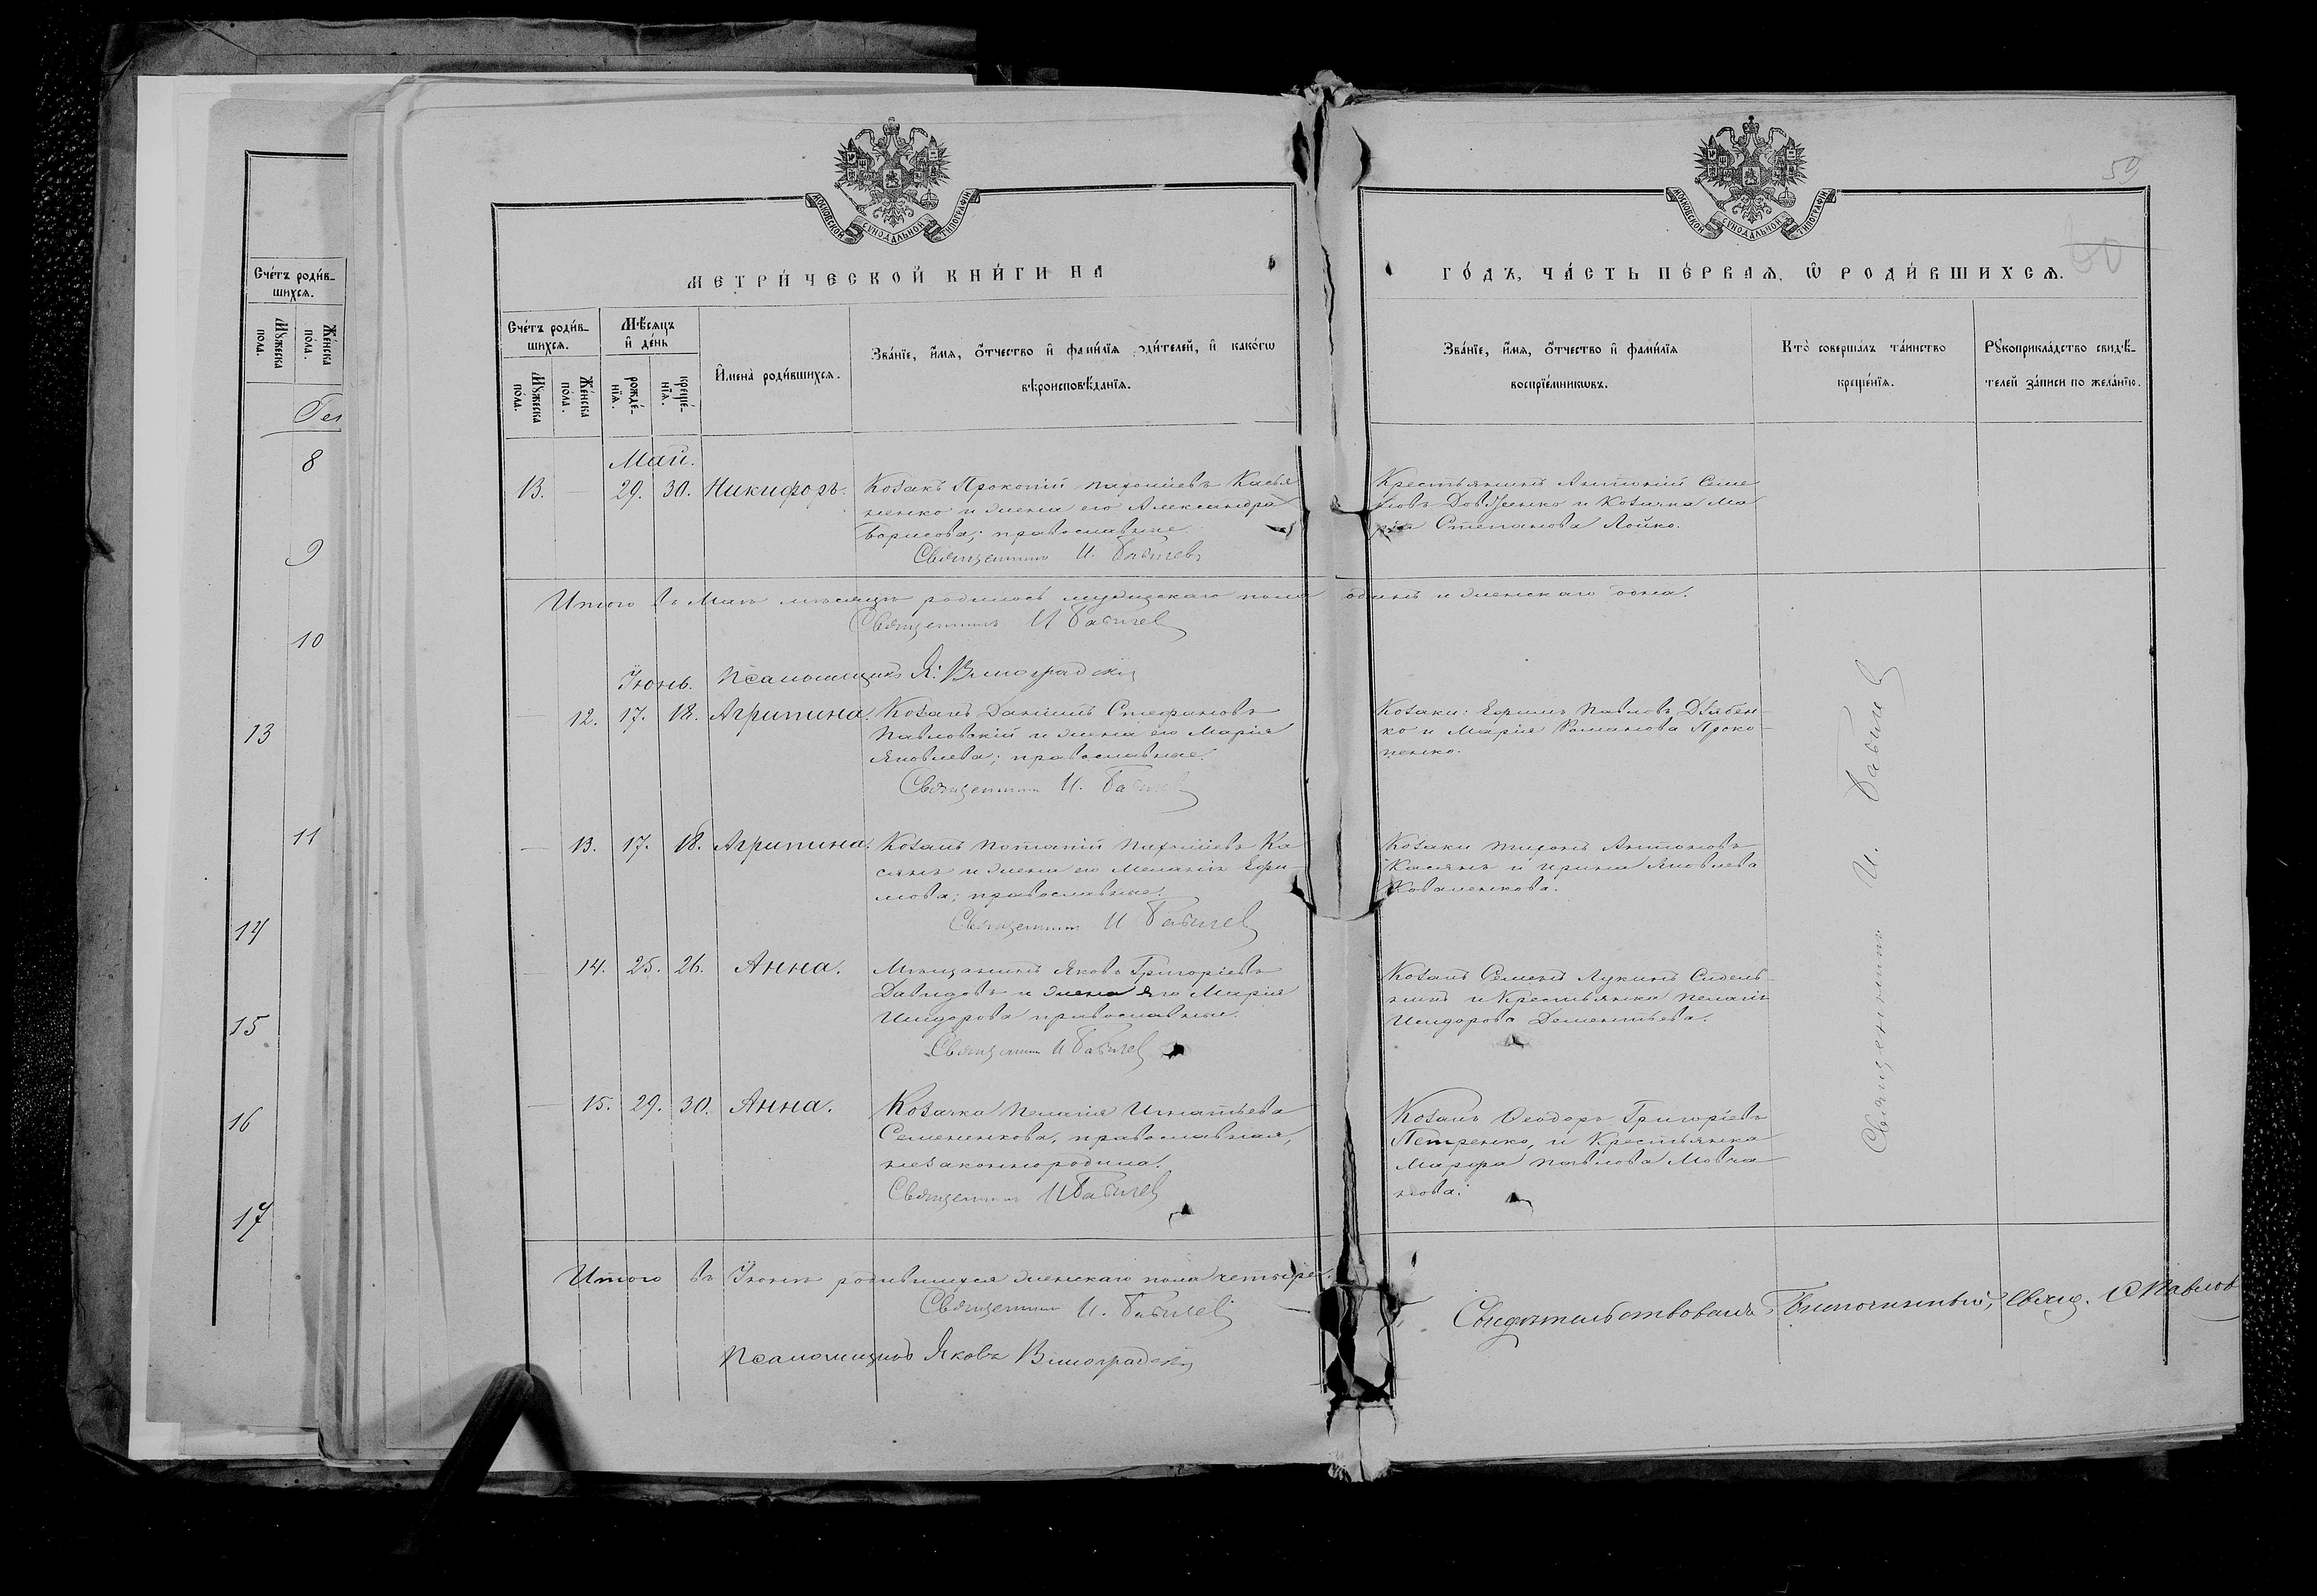 59
60
МОСКОВСКОЙ СУНОДАЛЬНОЙ ТИПОГРАФІИ
МОСКОВСКОЙ СУНОДАЛЬНОЙ ТИПОГРАФІИ
МЕТРИ́ЧЕСКОЙ КНИ́ГИ НА
ГО́ДЪ, ЧА́СТЬ ПЕ́РВАЯ, Ѡ҆ РОДИ́ВШИХСЯ.
Сче́тъ роди́в-
шихся.
Мꙋ́жеска
по́ла.
Же́нска
по́ла.
Мѣ́сяцъ
и҆ де́нь
рожде́-
нїя.
креще́-
нїя.
И҆мена̀ роди́вшихся.
Зва́нїе, и҆́мя, ѻ҆́тчество и҆ фами́лїя роди́телей, и҆ како́гѡ
вѣроисповѣ́данїя.
Зва́нїе, и҆́мя, ѻ҆́тчество и҆ фами́лїя
воспрїе́мникѡвъ.
Кто̀ соверша́лъ та́инство
креще́нїя.
Рꙋкоприкла́дство свидѣ́-
телей за́писи по жела́нїю.
Сче́тъ роди́в-
шихся.
Мꙋ́жеска
по́ла.
Же́нска
по́ла.
Ген
8
9
10
13
11
14
15
16
17
Май.
13. — 29. 30. Никифоръ. Козакъ Прокопій Пахоміевъ Касья
ненко и жена его Александра
Борисова; православные
Священникъ И. Бабичев
Крестьянинъ Антоній Семе
новъ и Козачка Ма
рія Степанова Лойко.
Итого въ Маѣ мѣсяцѣ родилось мужескаго пола одинъ и женскаго одна.
Священникъ И Бабичев
Псаломщикъ Я. Виноградскій
Іюнь.
— 12. 17. 18. Агрипина. Козакъ Даніилъ Стефановъ
Павловскій и жена его Марія
Яковлева; православные.
Священникъ И. Бабичев
Козаки: Ефимъ Павловъ Дзюбен-
ко и Марія Романова Проко-
пенко.
— 13. 17. 18. Агрипина. Козакъ Потапій Пахоміевъ Ка
сянъ и жена его Меланія Ефи-
мова; православные.
Священникъ И Бабичев
Козаки Тихонъ Антоновъ
Касянъ и Ирина Яковлева
Коваленкова.
— 14. 25. 26. Анна. Мѣщанинъ Яковъ Григоріевъ
Давидовъ и жена его Марія
Исидорова православные.
Священникъ И Бабичев
Козакъ Семенъ Лукинъ Сидель
никъ и Крестьянка Пелагія
Исидорова Дементьева.
— 15. 29. 30. Анна. Козачка Пелагія Игнатьева
Семененкова, православная,
незаконнородила.
Священникъ И Бабичев
Козакъ Феодоръ Григоріевъ
Петренко, и Крестьянка
Марфа Павлова Мовча
нова.
Священникъ И. Бабичев
Итого въ Іюнѣ родившихся женскаго пола четыре.
Священникъ И. Бабичев
Псаломщикъ Яковъ Виноградскій
Свидѣтельствовалъ Благочинный, Свящ. Павлов